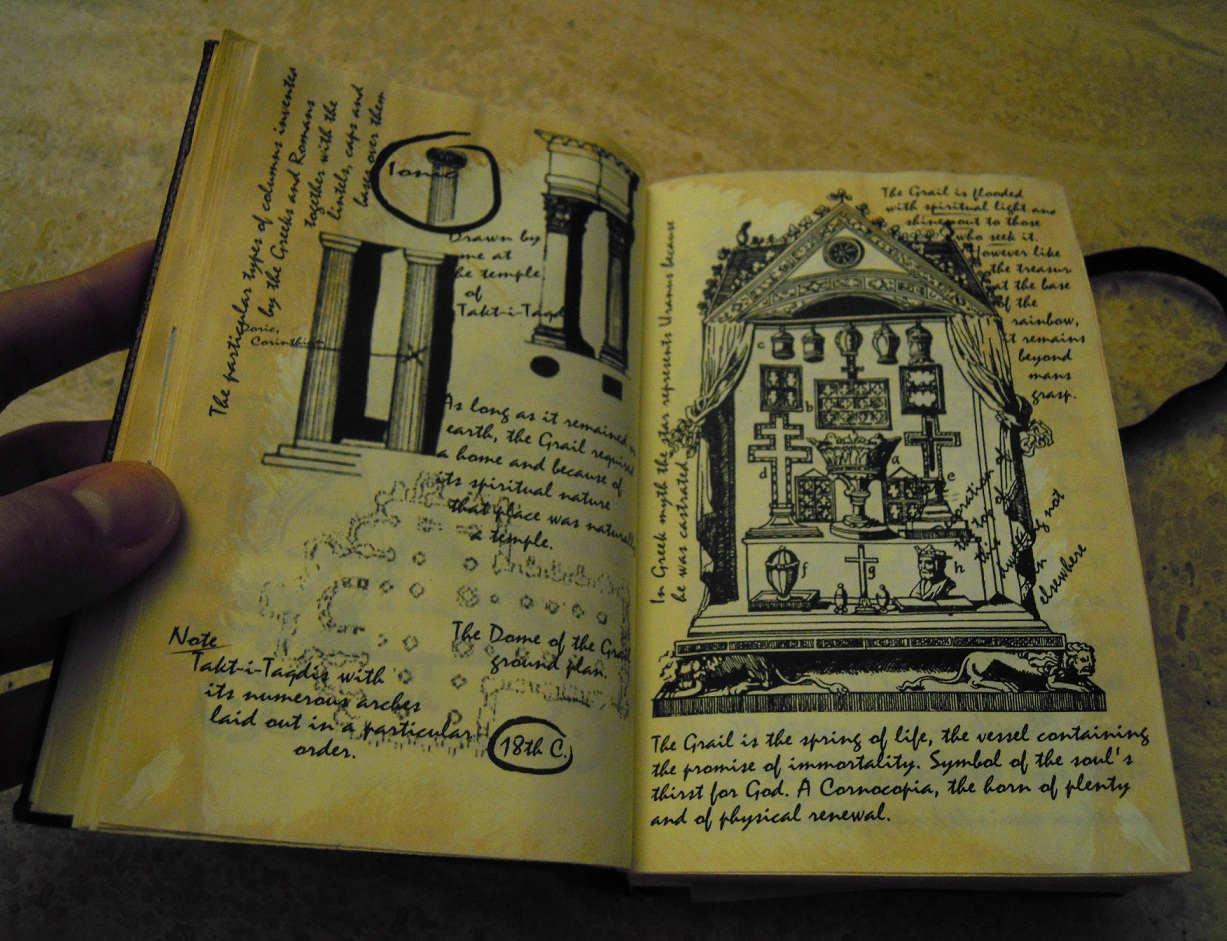 The particular types of columns invented
by the Greeks and Romans
together with the
lintels, caps and
base over them
Ionic
oric,
Corinthian
Drawn by
me at
he temple
of
Takt-i-Taqd
As long as it remained
earth, the Grail required
a home and because of
its spiritual nature
that place was naturally
a temple.
The Dome of the Gra
ground plan.
Note
Takt-i-Taqdis with
its numerous arches
laid out in a particular
order.
18th C.
In Greek myth the star represents Uranus because
he was castrated.
The Grail is flooded
with spiritual light and
shine out to those
who seek it.
However like
the treasur
at the base
of the
rainbow,
it remains
beyond
mans
grasp.
c
b
d
a
e
f
g
h
the top of
this
not
in
elsewhere
The Grail is the spring of life, the vessel containing
the promise of immortality. Symbol of the soul's
thirst for God. A Cornocopia, the horn of plenty
and of physical renewal.